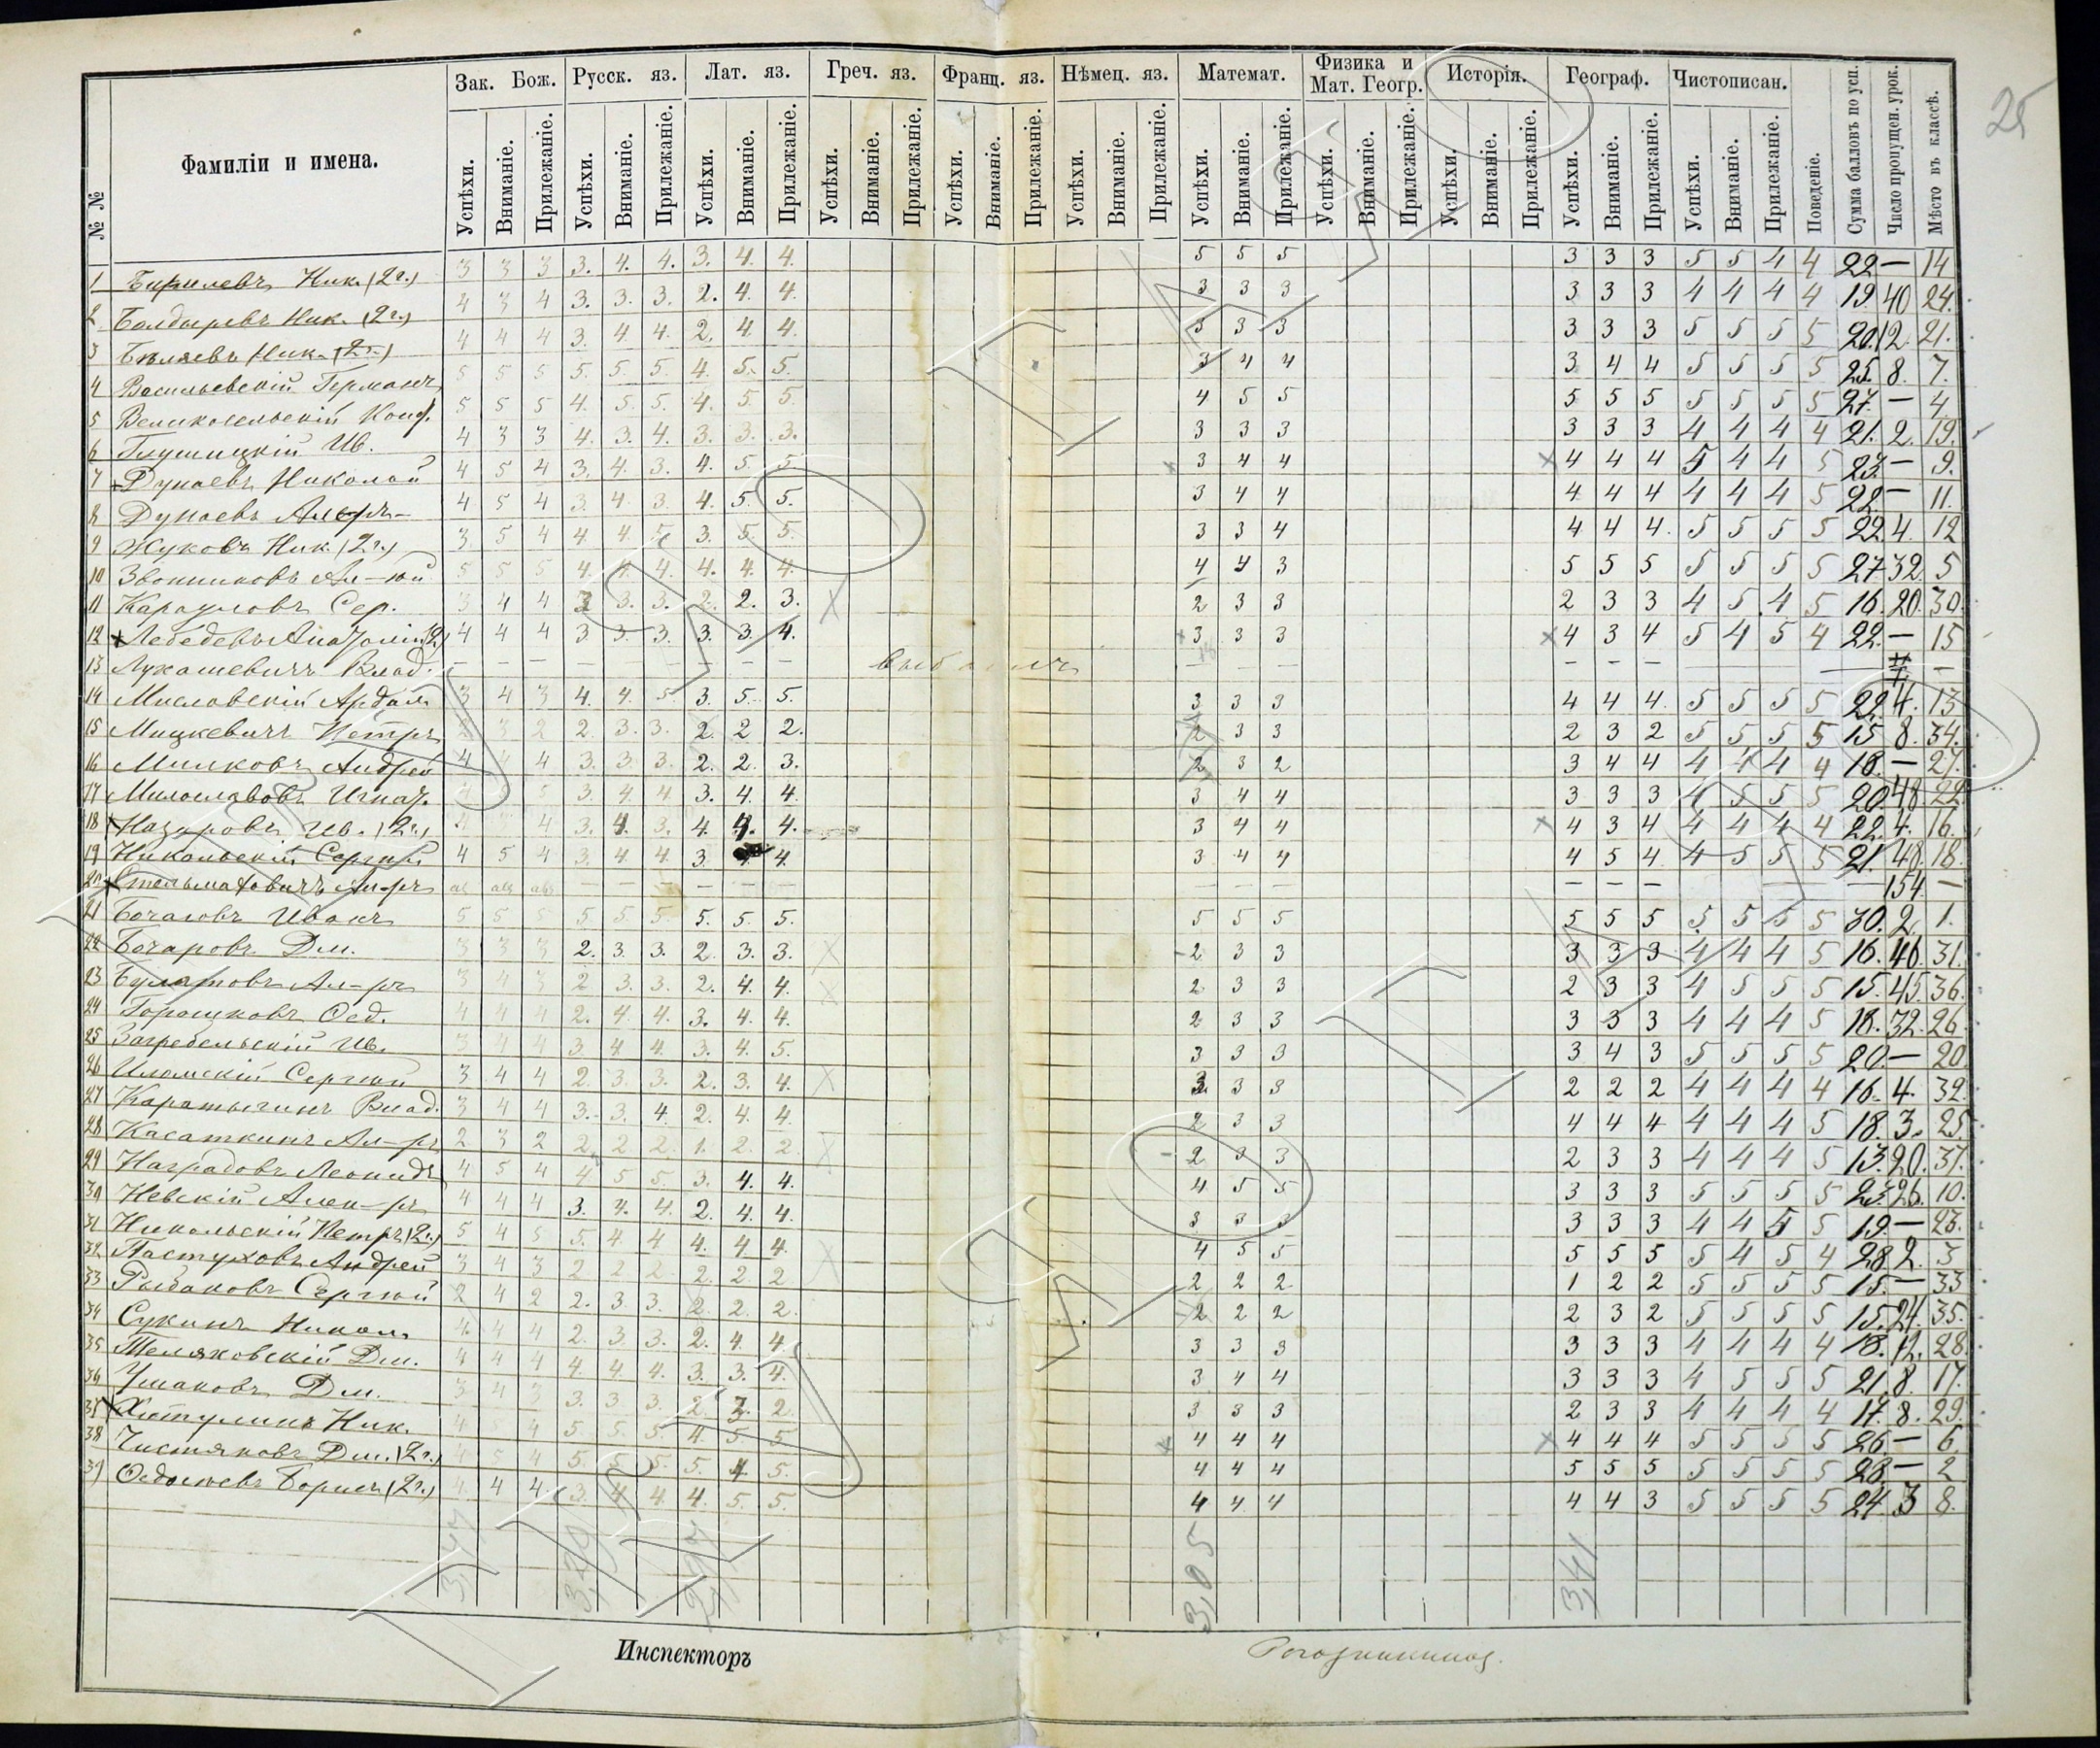 25
№ № Фамиліи и имена. Зак. Бож. Русск. яз. Лат. яз. Греч. яз. Франц. яз. Нѣмец. яз. Математ. Физика и Мат. Геогр. Исторія. Географ. Чистописан. Поведеніе. Сумма балловъ по усп. Число пропущен. урок. Мѣсто въ классѣ.
Успѣхи. Вниманіе. Прилежаніе. Успѣхи. Вниманіе. Прилежаніе. Успѣхи. Вниманіе. Прилежаніе. Успѣхи. Вниманіе. Прилежаніе. Успѣхи. Вниманіе. Прилежаніе. Успѣхи. Вниманіе. Прилежаніе. Успѣхи. Вниманіе. Прилежаніе. Успѣхи. Вниманіе. Прилежаніе. Успѣхи. Вниманіе. Прилежаніе. Успѣхи. Вниманіе. Прилежаніе. Успѣхи. Вниманіе. Прилежаніе.
1 Бирилевъ Ник. (2г.) 3 3 3 3. 4. 4. 3. 4. 4. 5 5 5 3 3 3 5 5 4 4 22 — 14
2 Болдыревъ Ник. (2г.) 4 3 4 3. 3. 3. 2. 4. 4. 3 3 3 3 3 3 4 4 4 4 19 40 24.
3 Бѣляевъ Ник. (2г.) 4 4 4 3. 4. 4. 2. 4. 4. 3 3 3 3 3 3 5 5 5 5 20. 12. 21.
4 Васильевскій Германъ 5 5 5 5. 5. 5. 4. 5. 5. 3 4 4 3 4 4 5 5 5 5 25. 8. 7.
5 Великосельскій 5 5 5 4. 5. 5. 4. 5. 5. 4 5 5 5 5 5 5 5 5 5 27. — 4
6 Глушицкій Ив. 4 3 3 4. 3. 4. 3. 3. 3. 3 3 3 3 3 3 4 4 4 4 21. 2. 19.
7 Дунаевъ Николай 4 5 4 3. 4. 3. 4. 5. 5. 3 4 4 4 4 4 5 4 4 5 23. — 9.
8 Дунаевъ Ал-ръ 4 5 4 3. 4. 3. 4. 5. 5. 3 4 4 4 4 4 4 4 4 5 22. — 11.
9 Жуковъ Ник. (2г.) 3 5 4 4. 4. 5. 3. 5. 5. 3 3 4 4 4 4. 5 5 5 5 22. 4. 12
10 Звонниковъ Ал-ѣй 5 5 5 4. 4. 4. 4. 4. 4. 4 4 3 5 5 5 5 5 5 5 27 32. 5
11 Карауловъ Сер. 3 4 4 3 3. 3. 2. 2. 3. 2 3 3 2 3 3 4 5 4 5 16. 20. 30.
12 Лебедевъ Анатолій 4 4 4 3 3. 3. 3. 3. 4. 3 3 3 4 3 4 5 4 5 4 22. — 15
13 Лукашевичъ Влад. — — — — — — выбылъ — — — — — — —
14 Мисловскій 3 4 3 4. 4. 5 3. 5. 5. 3 3 3 4 4 4. 5 5 5 5 22. 4. 13
15 Мицкевичъ Петръ 2 3 2 2. 3. 3. 2. 2 2. 2 3 3 2 3 2 5 5 5 5 15 8. 34.
16 Милковъ Андрей 4 4 4 3. 3. 3. 2. 2. 3. 2 3 2 3 4 4 4 4 4 4 18. — 27.
17 Милославовъ Игнат. 3. 4. 4 3. 4. 4. 3 4 4 3 3 3 4 5 5 5 20. 48 22
18 Назаровъ Ив. (2г.) 3. 4. 3. 4. 4. 4. 3 4 4 4 3 4 4 4 4 4 22. 4. 16.
19 Никольскій Сергѣй 4 5 4 3. 4. 4. 3. 4. 4. 3 4 4 4 5 4 4 5 5 5 21. 48. 18.
20 Стельмаховичъ Ал-ръ abs abs abs — — — — — — — — — — — — — 154. —
21 Бочаговъ Иванъ 5 5 5 5. 5. 5. 5. 5. 5. 5 5 5 5 5 5 5 5 5 5 30. 2. 1.
22 Бочаровъ Дм. 3 3 3 2. 3. 3. 2. 3. 3. 2 3 3 3 3 3 4 4 4 5 16. 40. 31.
23 Булатовъ Ал-ръ 3 4 3 2 3. 3. 2. 4. 4. 2 3 3 2 3 3 4 5 5 5 15. 45. 36.
24 Горошковъ Ѳед. 4 4 4 2. 4. 4. 3. 4. 4. 2 3 3 3 3 3 4 4 4 5 18. 32. 26.
25 Загребельскій Ив. 3 4 4 3. 4. 4. 3. 4. 5. 3 3 3 3 4 3 5 5 5 5 20. — 20
26 Иломскій Сергѣй 3 4 4 2. 3. 3. 2. 3. 4. 3. 3 3 2 2 2 4 4 4 4 16. 4. 32.
27 Каратыгинъ Влад. 3 4 4 3. 3. 4 2. 4. 4. 2 3 3 4 4 4 4 4 4 5 18. 3. 25.
28 Касаткинъ Ал-ръ 2 3 2 2. 2. 2. 1. 2. 2. 2 3 3 2 3 3 4 4 4 5 13. 20. 37.
29 Наградовъ Леонидъ 4 5 4 4 5 5 3. 4. 4. 4 5 5 3 3 3 5 5 5 5 23. 26. 10.
30 Невскій Алек-ръ 4 4 4 3. 4. 4. 2. 4. 4. 3 3 3 3 3 3 4 4 5 5 19. — 23.
31 Никольскій Петръ (2г.) 5 4 5 5. 4. 4 4. 4. 4. 4 5 5 5 5 5 5 4 5 4 28. 2. 3
32 Пастуховъ Андрей 3 4 3 2 2 2 2. 2. 2 2 2 2 1 2 2 5 5 5 5 15. — 33
33 Рыбаковъ Сергѣй 2 4 2 2. 3. 3. 2. 2. 2. 2 2 2 2 3 2 5 5 5 5 15. 24. 35.
34 Сукинъ Никол. 4 4 4 2. 3. 3. 2. 4. 4. 3 3 3 3 3 3 4 4 4 4 18. 12. 28.
35 Теляковскій Дм. 4 4 4 4. 4. 4. 3. 3. 4. 3 4 4 3 3 3 4 5 5 5 21. 8. 17.
36 Ушаковъ Дм. 3 4 3 3. 3. 3. 2. 3. 2. 3 3 3 2 3 3 4 4 4 4 17. 8. 29.
37 Ник. 4 5 4 5. 5. 5. 4. 5. 5 4 4 4 4 4 4 5 5 5 5 26. — 6.
38 Чистяковъ Дм. (2г.) 4 5 4 5. 5. 5. 5. 4. 5. 4 4 4 5 5 5 5 5 5 5 28. — 2
39 Ѳедосѣевъ Борисъ (2г.) 4. 4 4 3. 4. 4. 4. 5. 5. 4 4 4 4 4 3 5 5 5 5 24. 3 8.
3,47 3,29 2,97 3,05 3,41
Инспекторъ